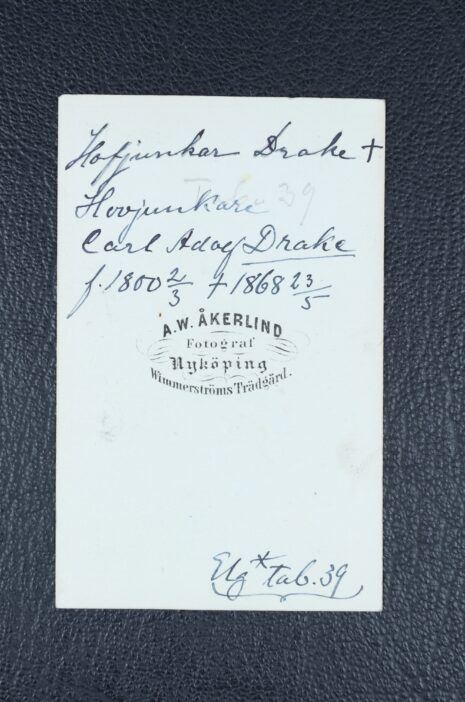 Hofjunkar Drake +
Hovjunkare
Carl Adolf Drake
f. 1800 2/3 † 1868 23/5
A.W. ÅKERLIND
Fotograf
Nyköping
Wimmerströms Trädgård.
Elg* tab. 39